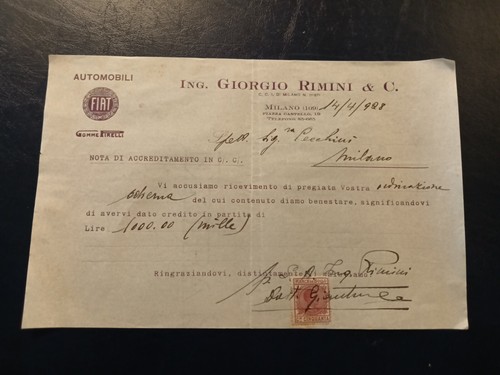 AUTOMOBILI
FIAT
GOMME PIRELLI
ING. GIORGIO RIMINI & C.
MILANO (109) 14/4/928
PIAZZA CASTELLO, 19
Spett. Sig.
Milano
NOTA DI ACCREDITAMENTO IN C/. C/.
Vi accusiamo ricevimento di pregiata Vostra ordinazione
schema del cui contenuto diamo benestare, significandovi
di avervi dato credito in partita di:
Lire: 1000.00 (mille)
Ringraziandovi, distintamente Vi salutiamo.
p. Ing. Rimini
Dott.